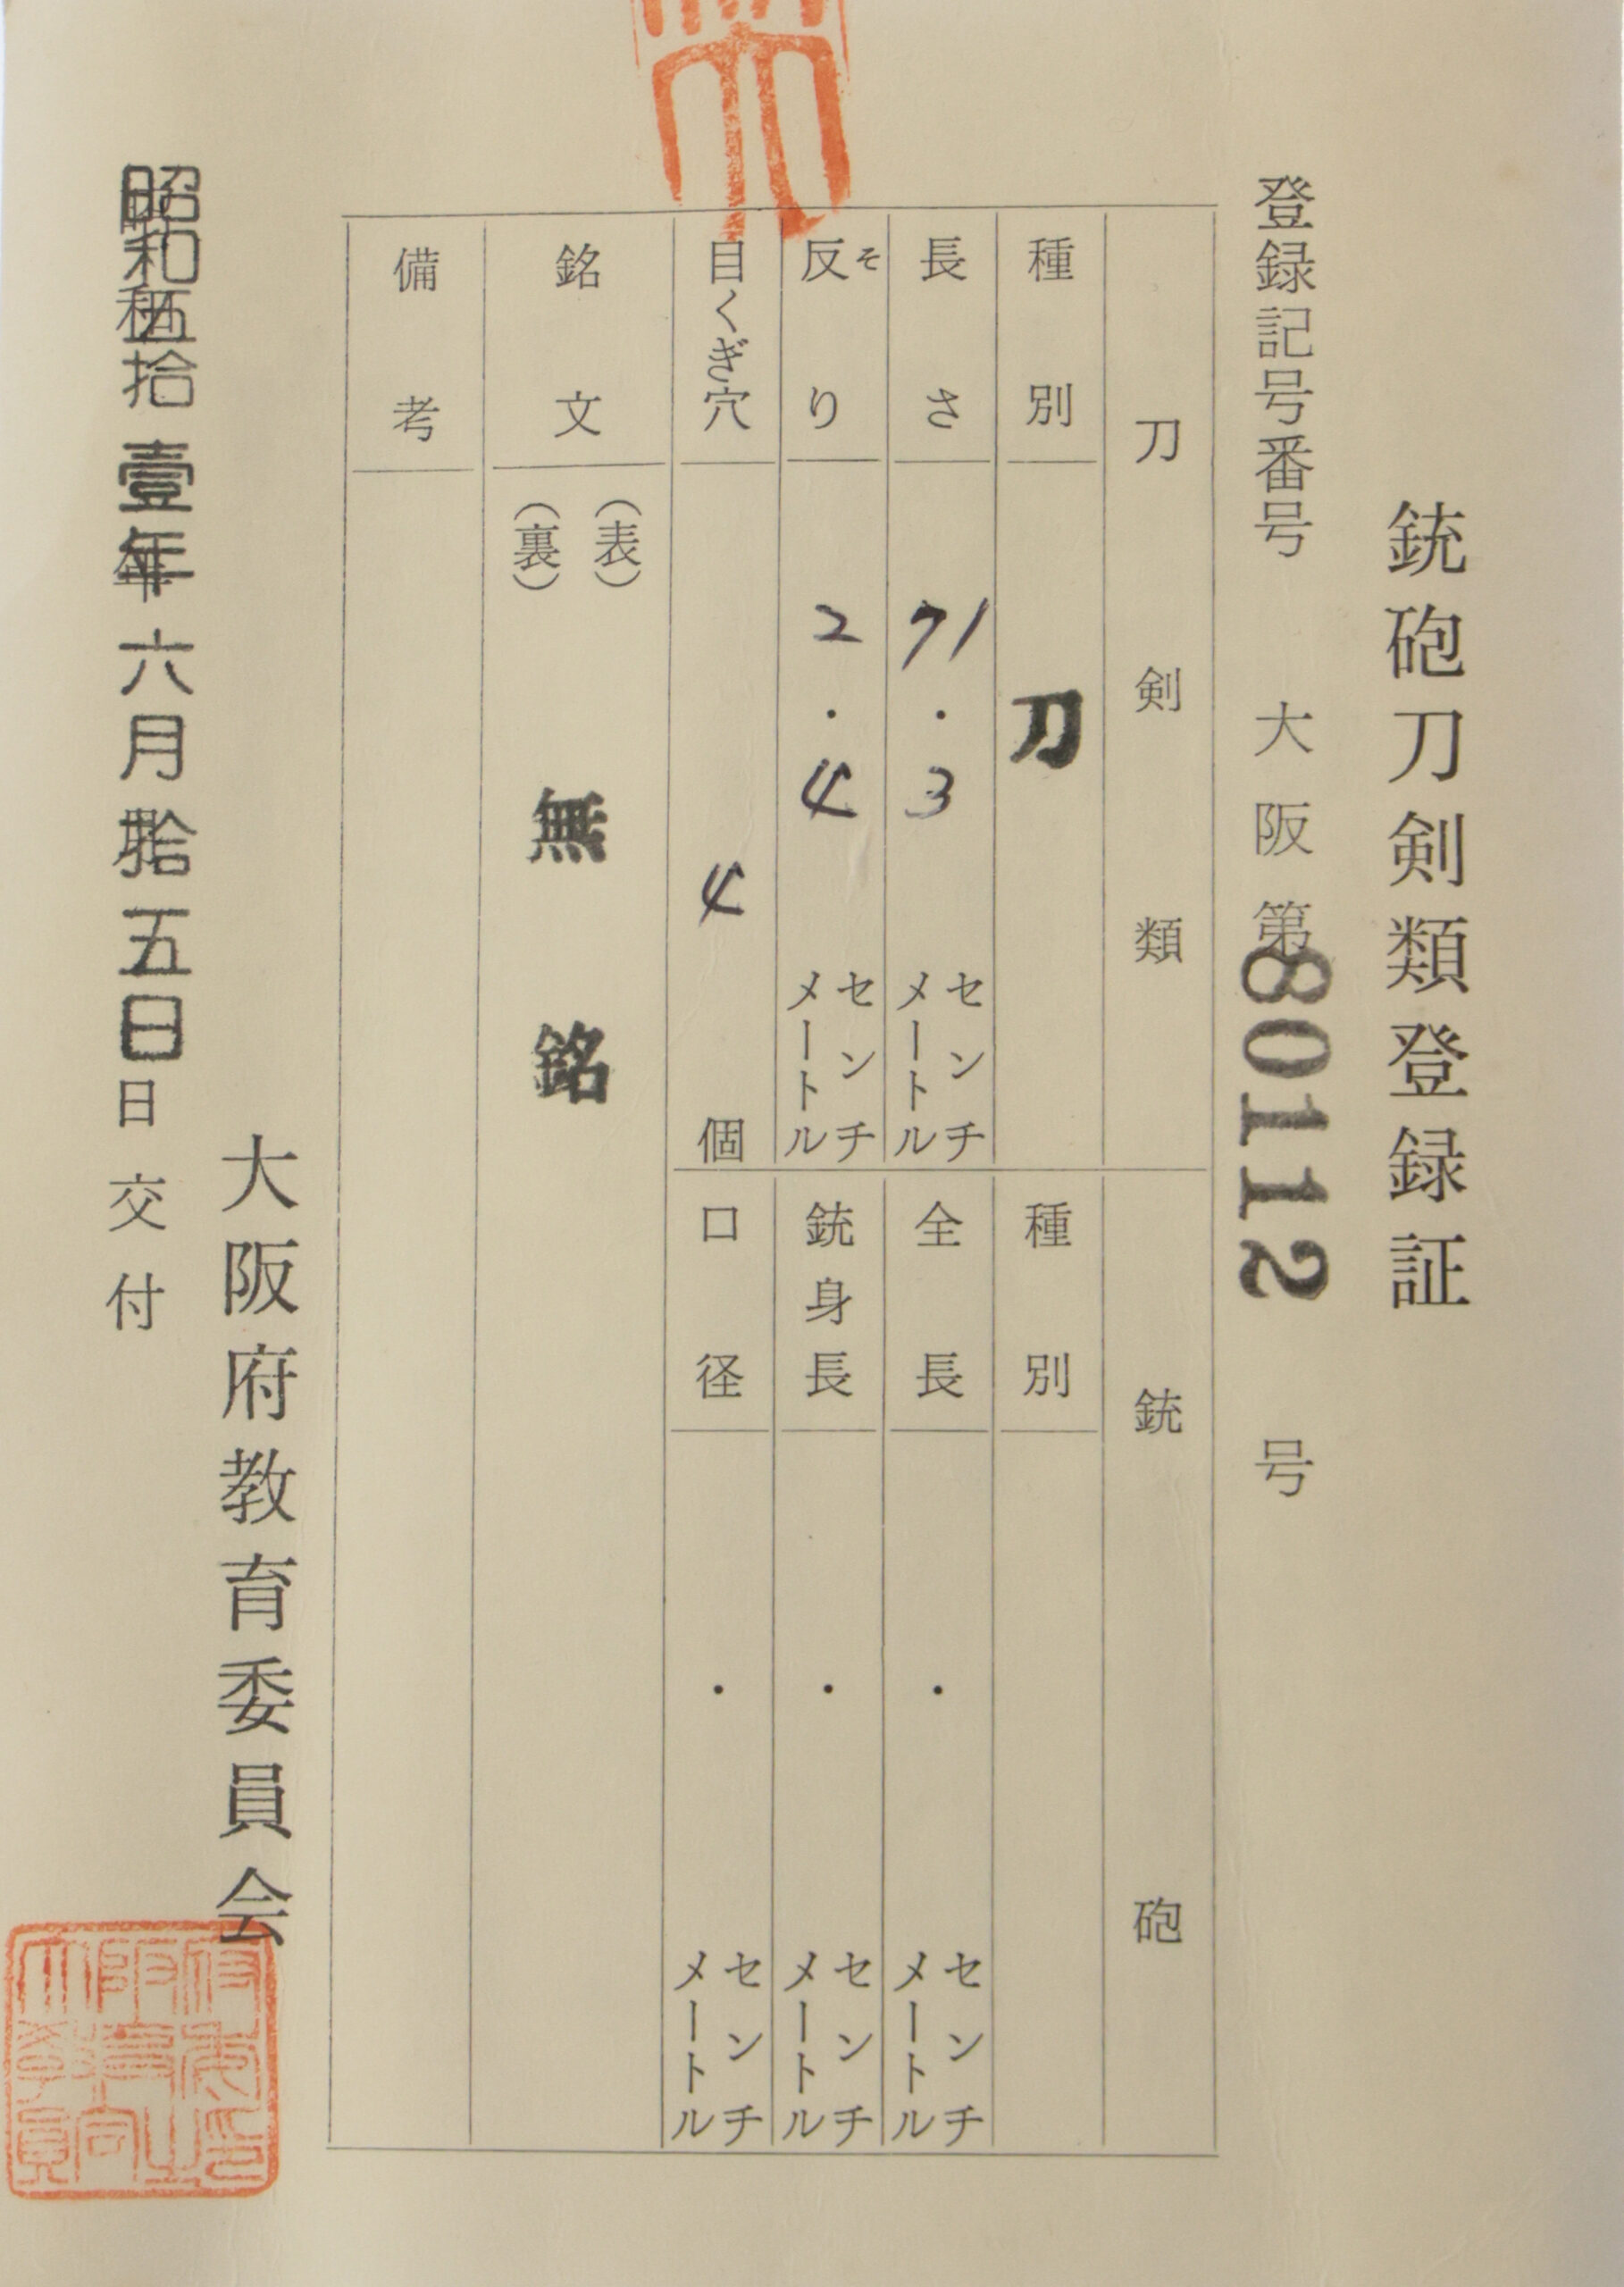 銃砲刀剣類登録証
登録記号番号 大阪第80112号
刀剣類
種別 刀
長さ 71.3 センチメートル
反り そ 2.4 センチメートル
目くぎ穴 4 個
銃砲
種別
全長 ・ センチメートル
銃身長 ・ センチメートル
口径 ・ センチメートル
銘文 (表)
(裏)
無銘
備考
大阪府教育委員会
昭和五拾壹年六月拾五日日交付